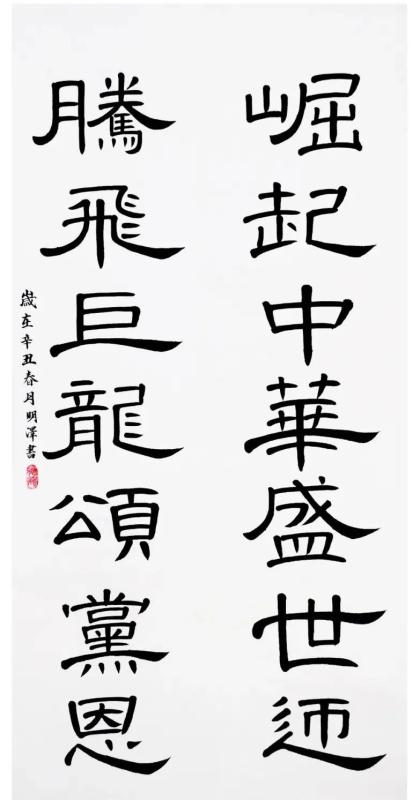 崛起中華盛世迊
騰飛巨龍頌黨恩
歲在辛丑春月明澤書